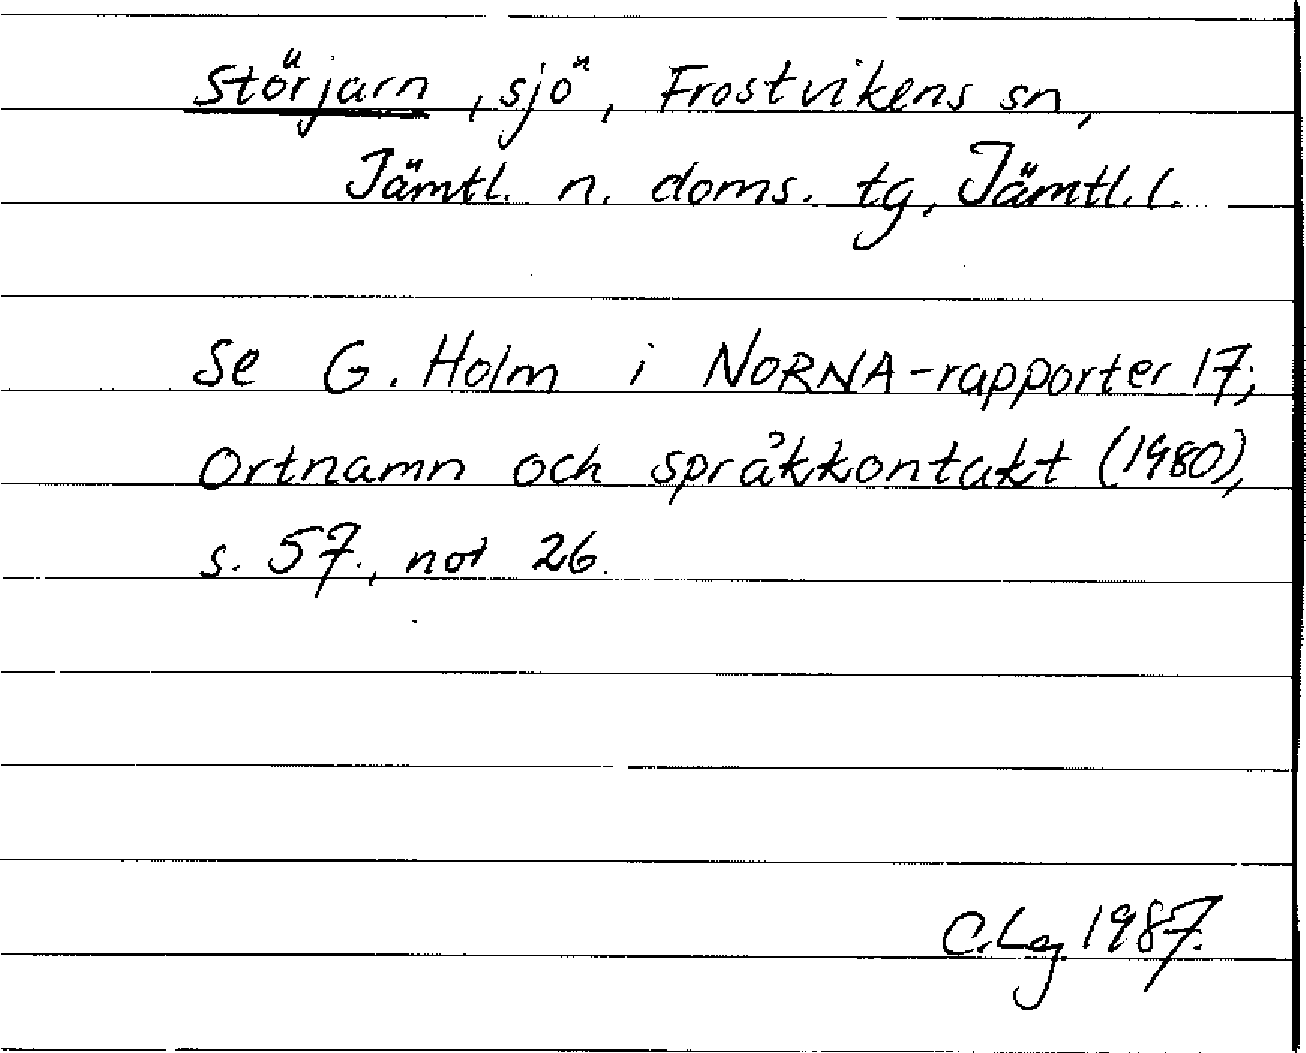 Störjarn, sjö, Frostvikens sn,
Jämtl. n. doms. tg, Jämtl. l.
Se G. Holm i NORNA-rapporter 17;
Ortnamn och språkkontakt (1980),
s. 57., not 26.
C.Lg. 1987.